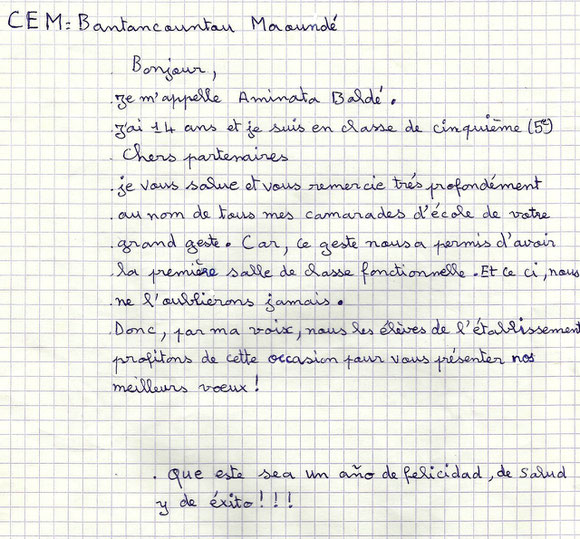 CEM: Bantancountou Maoundé
Bonjour,
Je m'appelle Aminata Baldé.
J'ai 14 ans et je suis en classe de cinquième (5e)
Chers partenaires
je vous salue et vous remercie très profondément
au nom de tous mes camarades d'école de votre
grand geste. Car, ce geste nous a permis d'avoir
la première salle de classe fonctionnelle. Et ce ci, nous
ne l'oublierons jamais.
Donc, par ma voix, nous les élèves de l'établissement
profitons de cette occasion pour vous présenter nos
meilleurs voeux!
. Que este sea un año de felicidad, de salud
y de éxito!!!